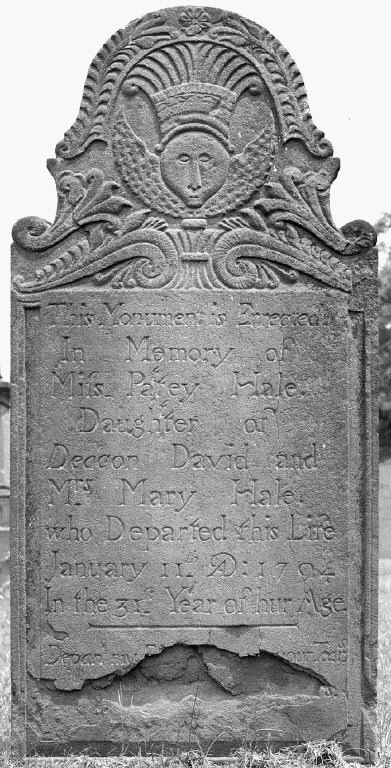 This Monument is Errected
In Memory of
Miss. Patey Hale.
Daughter of
Deccon David and
Mrs Mary Hale.
who Departed this Life
January 11th AD: 1794
In the 31st Year of hur Age.
Depart my